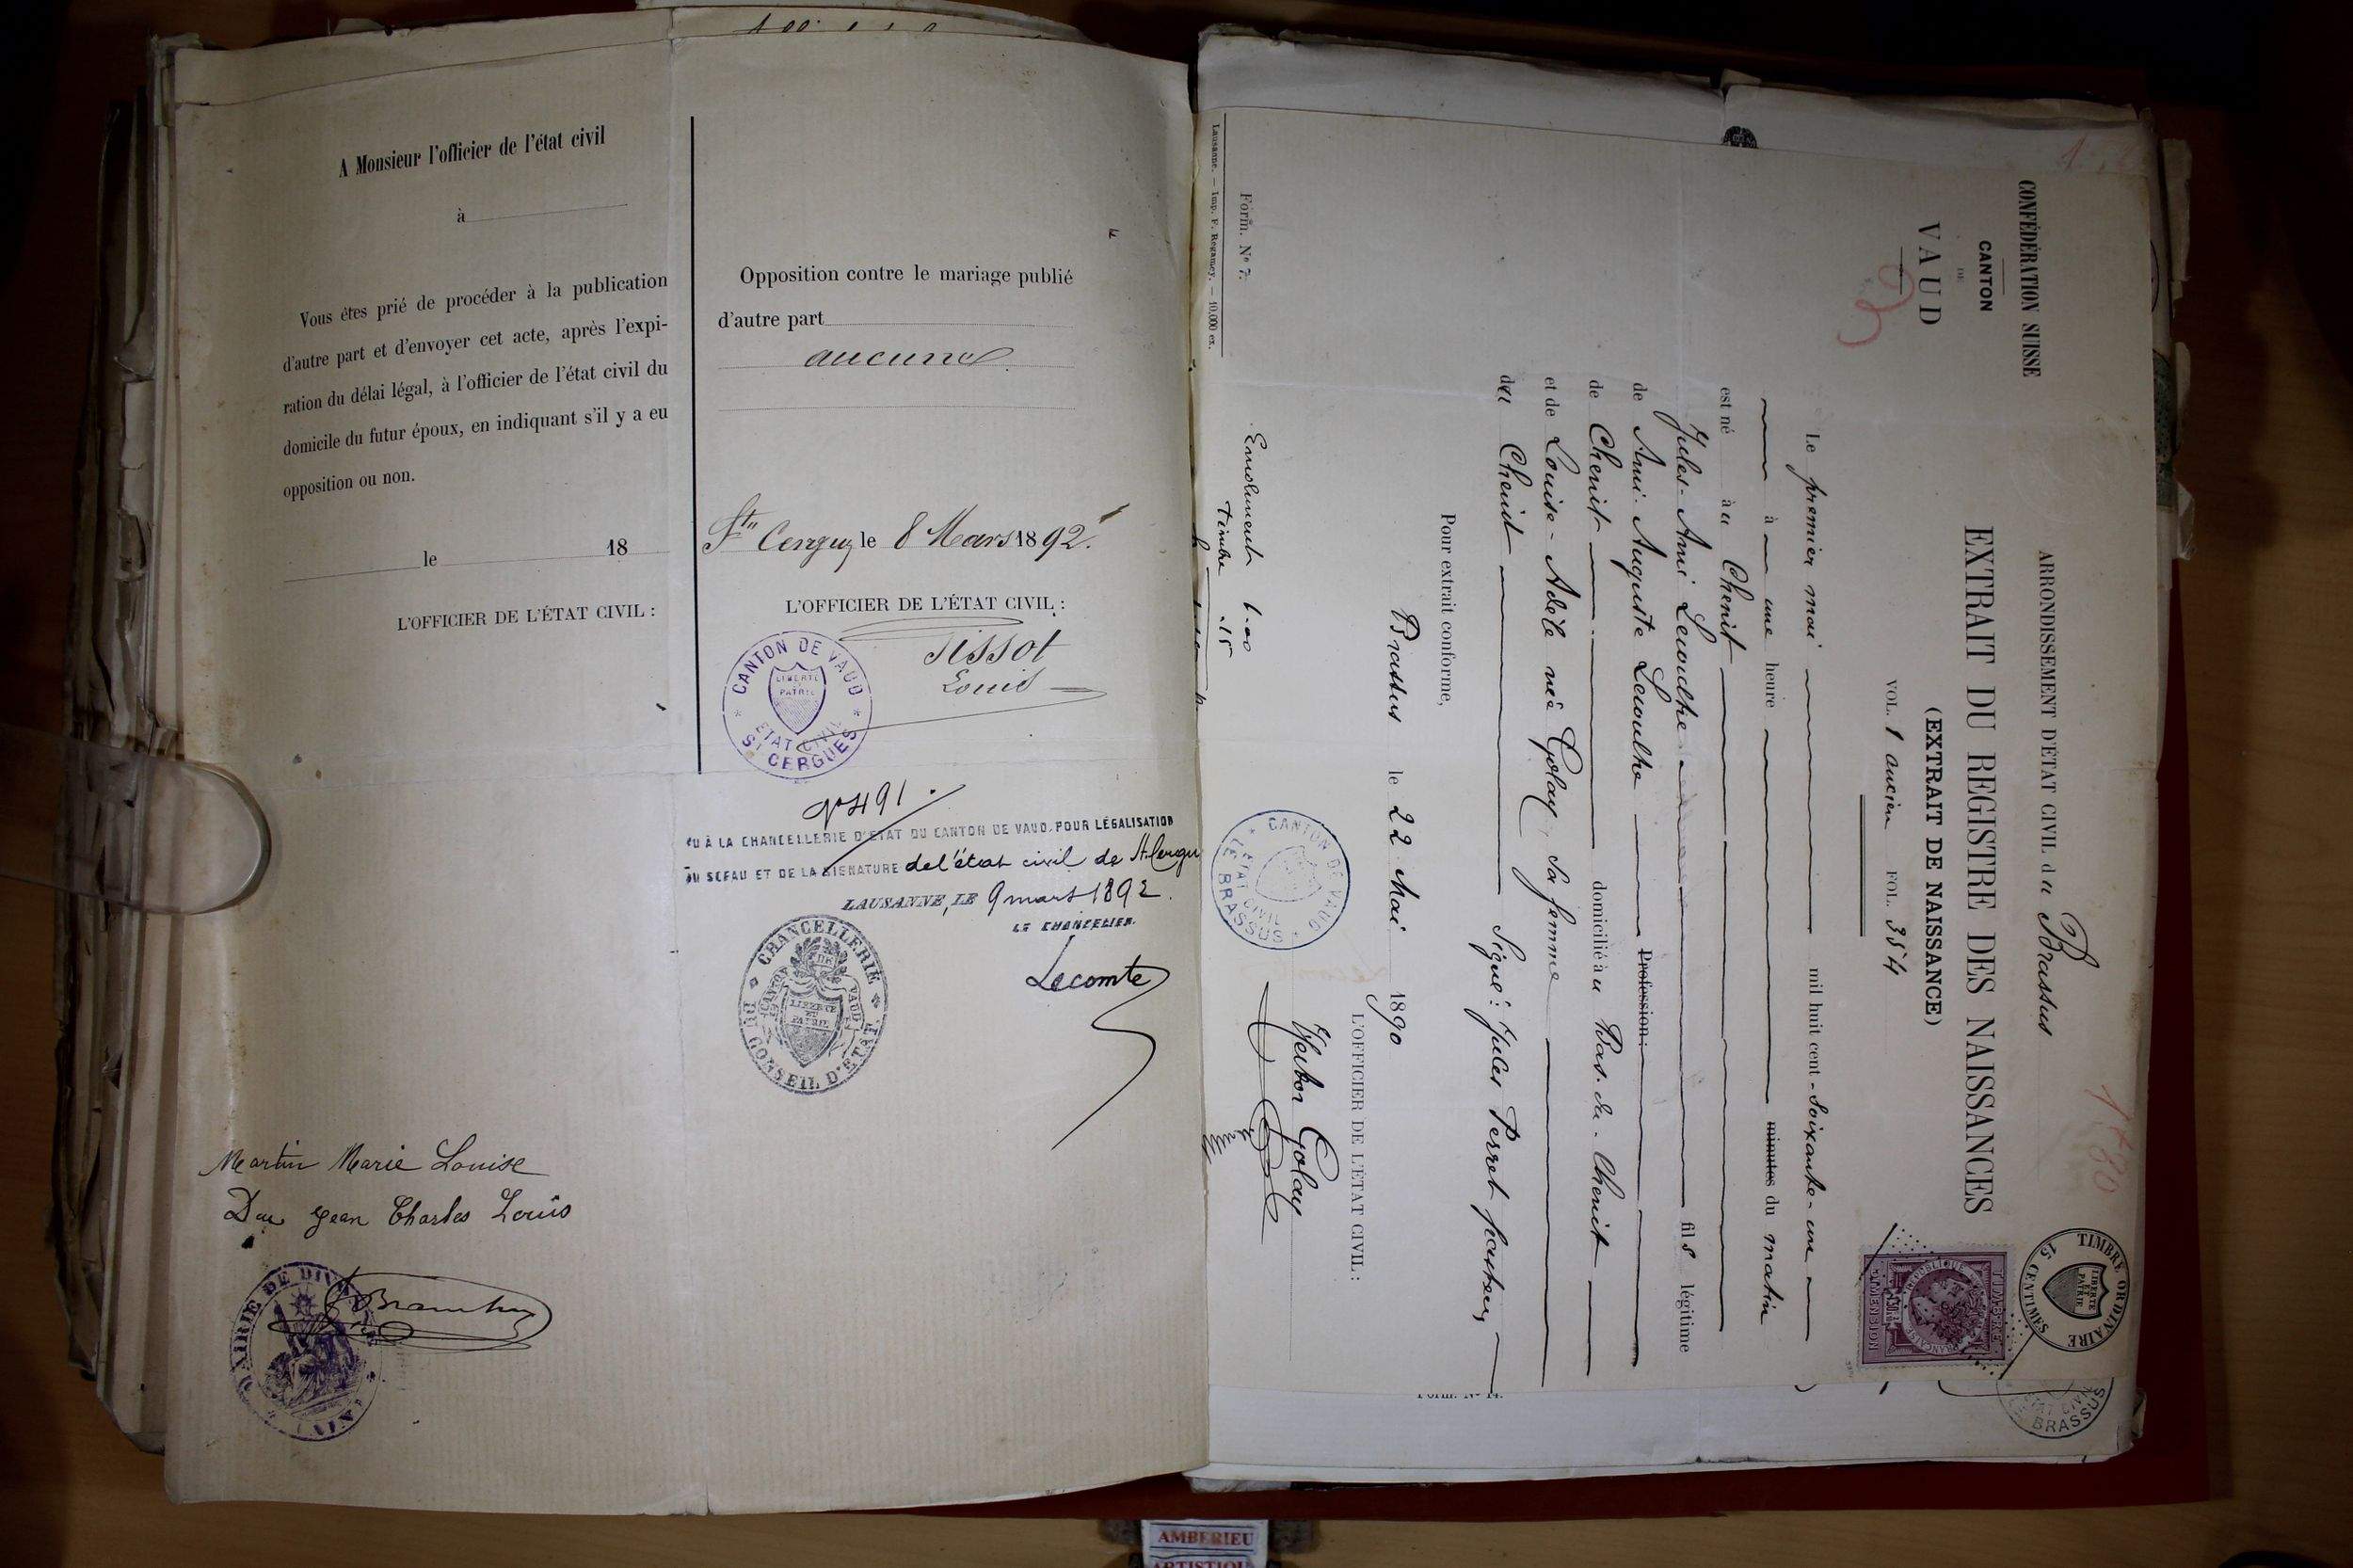 A Monsieur l'officier de l'état civil
à
Vous êtes prié de procéder à la publication
d'autre part et d'envoyer cet acte, après l'expi-
ration du délai légal, à l'officier de l'état civil du
domicile du futur époux, en indiquant s'il y a eu
opposition ou non.
le 18
L'OFFICIER DE L'ÉTAT CIVIL :
Martin Marie Louise
Duc Jean Charles Louis
MAIRIE DE DIV
(AIN)
Opposition contre le mariage publié
d'autre part
aucune
St Cergues le 8 Mars 1892.
L'OFFICIER DE L'ÉTAT CIVIL :
Tissot
Louis
CANTON DE VAUD
LIBERTÉ
ET
PATRIE
ETAT CIVIL
ST CERGUES
No 491.
VU À LA CHANCELLERIE D'ÉTAT DU CANTON DE VAUD, POUR LÉGALISATION
DU SCEAU ET DE LA SIGNATURE de l'état civil de St Cergu
LAUSANNE, LE 9 mars 1892.
LE CHANCELIER.
Lecomte
CHANCELLERIE
DU CONSEIL D'ETAT
CANTON DE VAUD
LIBERTÉ
ET
PATRIE
CONFÉDÉRATION SUISSE
CANTON
DE
VAUD
ARRONDISSEMENT D'ÉTAT CIVIL du Brassus
EXTRAIT DU REGISTRE DES NAISSANCES
(EXTRAIT DE NAISSANCE)
VOL. 1 ancien FOL. 354
TIMBRE ORDINAIRE
LIBERTÉ
ET
PATRIE
15 CENTIMES
Le premier mai mil huit cent-soixante-un
à une heure minutes du matin
est né au Chenit
Jules-Ami Lecoultre fils légitime
de Ami-Auguste Lecoultre Profession:
de Chenit domicilié au Bas-du-Chenit
et de Louise-Adèle née Golay, sa femme
du Chenit Signé: Jules Perret pasteur,
Pour extrait conforme,
Brassus le 22 Mai 1890
L'OFFICIER DE L'ÉTAT CIVIL :
Hector Golay
CANTON DE VAUD
ETAT CIVIL
LE BRASSUS
Emolument 1.00
Timbre .15
Form. No 7.
Lausanne. — Imp. F. Regamey. — 10,000 ex.
Form. No 14.
ETAT CIVIL
LE BRASSUS
AMBERIEU
ARTISTIQU